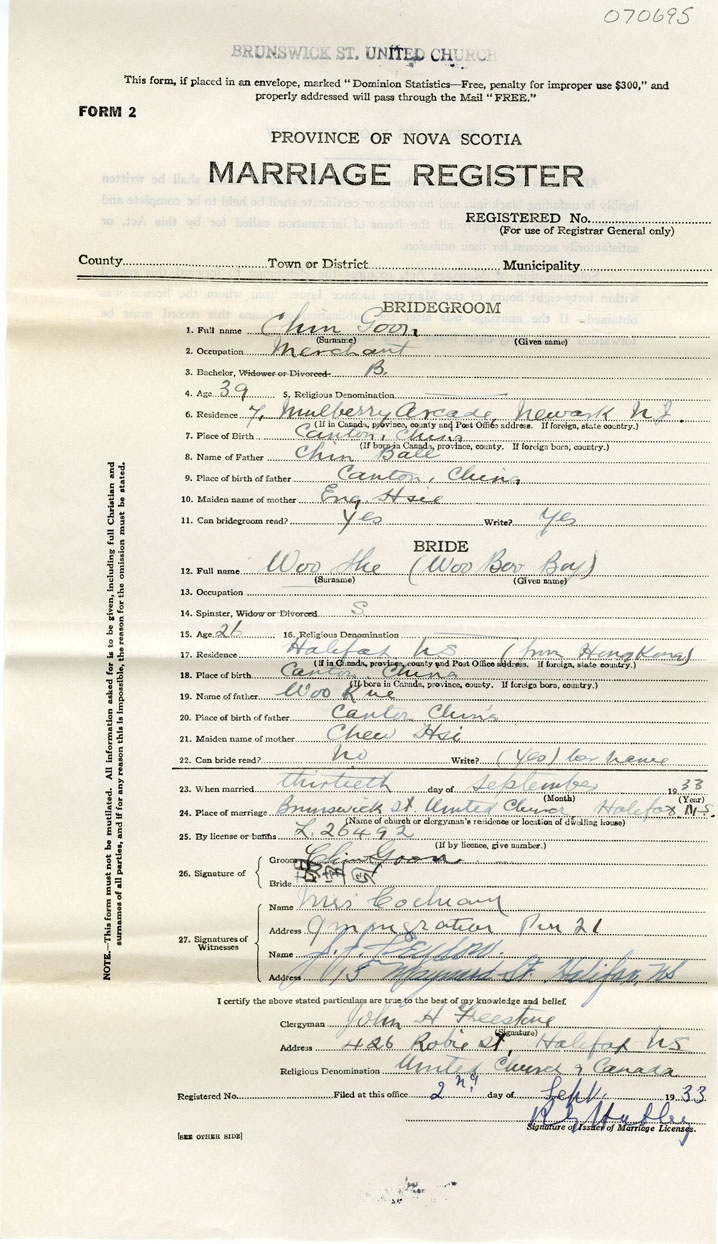 070695
BRUNSWICK ST. UNITED CHURCH
This form, if placed in an envelope, marked "Dominion Statistics—Free, penalty for improper use $300," and
properly addressed will pass through the Mail "FREE."
FORM 2
PROVINCE OF NOVA SCOTIA
MARRIAGE REGISTER
REGISTERED No.
(For use of Registrar General only)
County Town or District Municipality
BRIDEGROOM
1. Full name Chin Goon
(Surname) (Given name)
2. Occupation Merchant
3. Bachelor, Widower or Divorced B.
4. Age 39 5. Religious Denomination
6. Residence 7, Mulberry Arcade, Newark N.J.
(If in Canada, province, county and Post Office address. If foreign, state country.)
7. Place of Birth Canton, China
(If born in Canada, province, county. If foreign born, country.)
8. Name of Father Chin Ball
9. Place of birth of father Canton, China
10. Maiden name of mother Eng Hsie
11. Can bridegroom read? Yes Write? Yes
BRIDE
12. Full name Woo She (Woo Boo Boy)
(Surname) (Given name)
13. Occupation
14. Spinster, Widow or Divorced S
15. Age 26 16. Religious Denomination
17. Residence Halifax NS (from HongKong)
(If in Canada, province, county and Post Office address. If foreign, state country.)
18. Place of birth Canton China
(If born in Canada, province, county. If foreign born, country.)
19. Name of father Woo
20. Place of birth of father Canton China
21. Maiden name of mother Chew Hsi
22. Can bride read? No Write? (Yes) her name
23. When married thirtieth day of September 1933
(Month) (Year)
24. Place of marriage Brunswick St. United Church, Halifax N.S.
(Name of church or clergyman's residence or location of dwelling house)
25. By license or banns L. 26492
(If by licence, give number.)
26. Signature of Groom Chin Goon
Bride
27. Signatures of Witnesses
Name Mrs Cochrane
Address Immigration Pier 21
Name
Address Maynard St. Halifax, NS
I certify the above stated particulars are true to the best of my knowledge and belief.
Clergyman John H Freestone
(Signature)
Address 426 Robie St, Halifax NS
Religious Denomination United Church of Canada
Registered No. Filed at this office 2nd day of Sept. 1933
Signature of Issuer of Marriage Licenses.
[SEE OTHER SIDE]
NOTE.—This form must not be mutilated. All information asked for is to be given, including full Christian and
surnames of all parties, and if for any reason this is impossible, the reason for the omission must be stated.